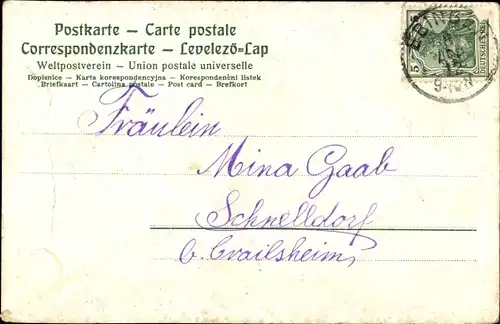 Postkarte – Carte postale
Correspondenzkarte – Levelező-Lap
Weltpostverein – Union postale universelle
Dopisnice – Karta korespondencyjna – Korespondenční lístek
Briefkaart – Cartolina postale – Post card – Brefkort
EBING
5
DEUTSCHES
Fräulein
Mina Gaab
Schnelldorf
b. Crailsheim